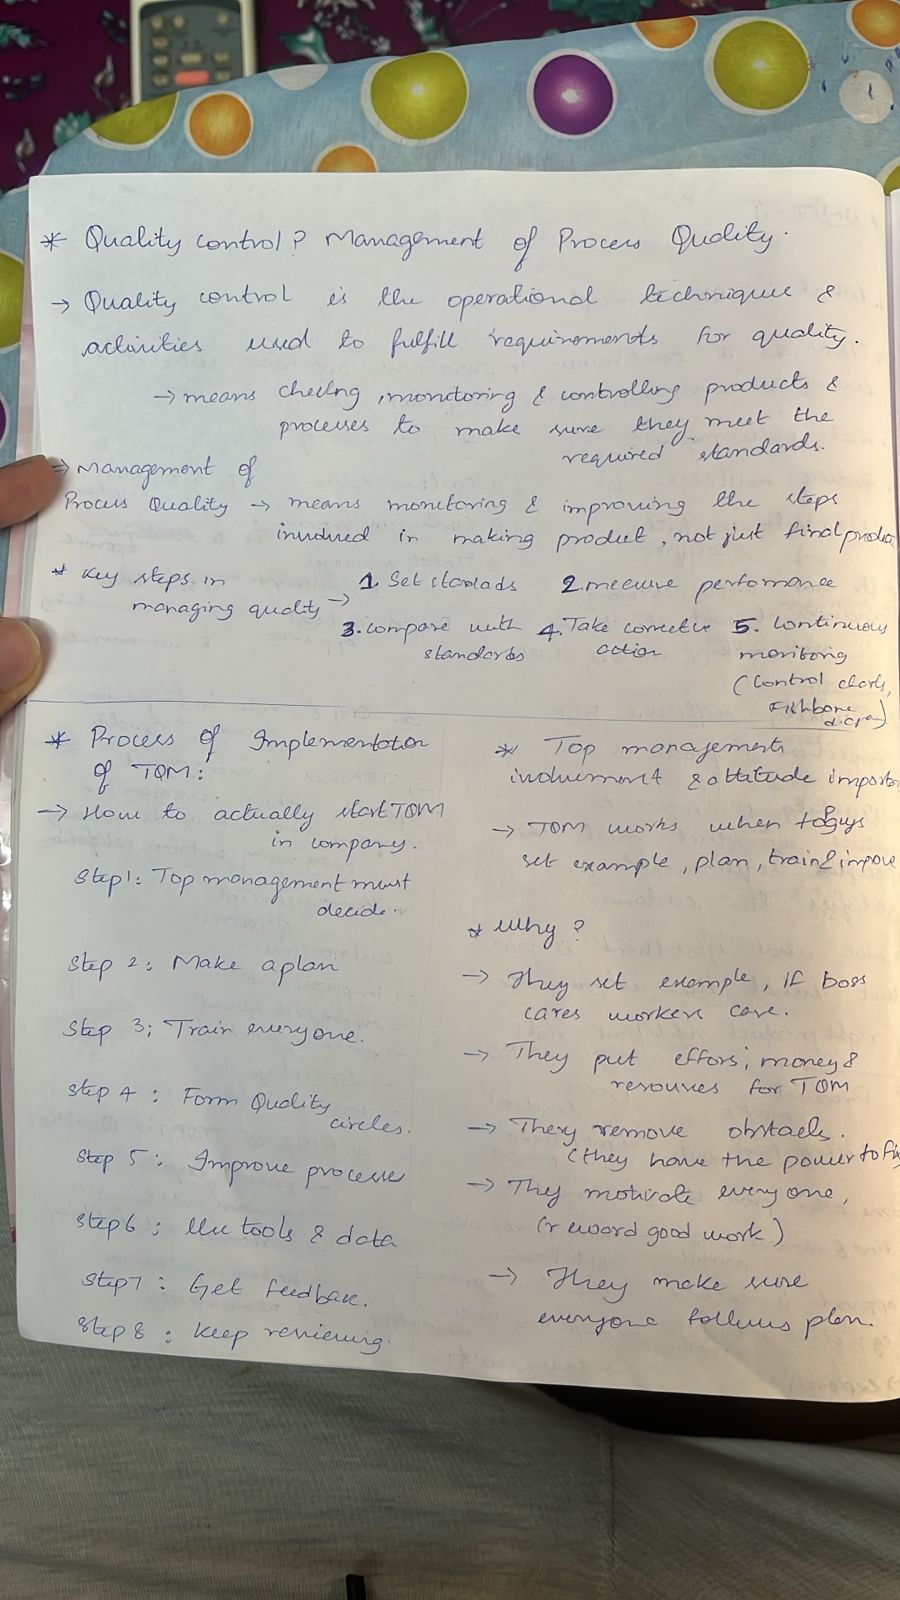 * Quality control? Management of Process Quality.
→ Quality control is the operational techniques &
activities used to fulfill requirements for quality.
→ means checing, monitoring & controlling products &
processes to make sure they meet the
required standards.
→ Management of
Process Quality → means monitoring & improving the steps
involved in making product, not just final produc
* Key steps in
managing quality →
1. Set standads 2. measure performance
3. compare with
standards
4. Take corrective
action
5. continuous
monitoring
(control charts,
Fishbone
diagram)
* Process of Implementation
of TQM:
→ How to actually start TQM
in company.
Step 1: Top management must
decide.
Step 2: Make a plan
Step 3; Train everyone.
Step 4: Form Quality
circles.
Step 5: Improve processes
Step 6: Use tools & data
Step 7: Get feedback.
Step 8: Keep reviewing.
* Top management
involvement & attitude importa
→ TQM works when top guys
set example, plan, train & improve
* Why?
→ They set example, if boss
cares workers care.
→ They put effors, money &
resources for TQM
→ They remove obstacls.
(they have the power to fix
→ They motivate everyone,
(reward good work)
→ They make sure
everyone follows plan.